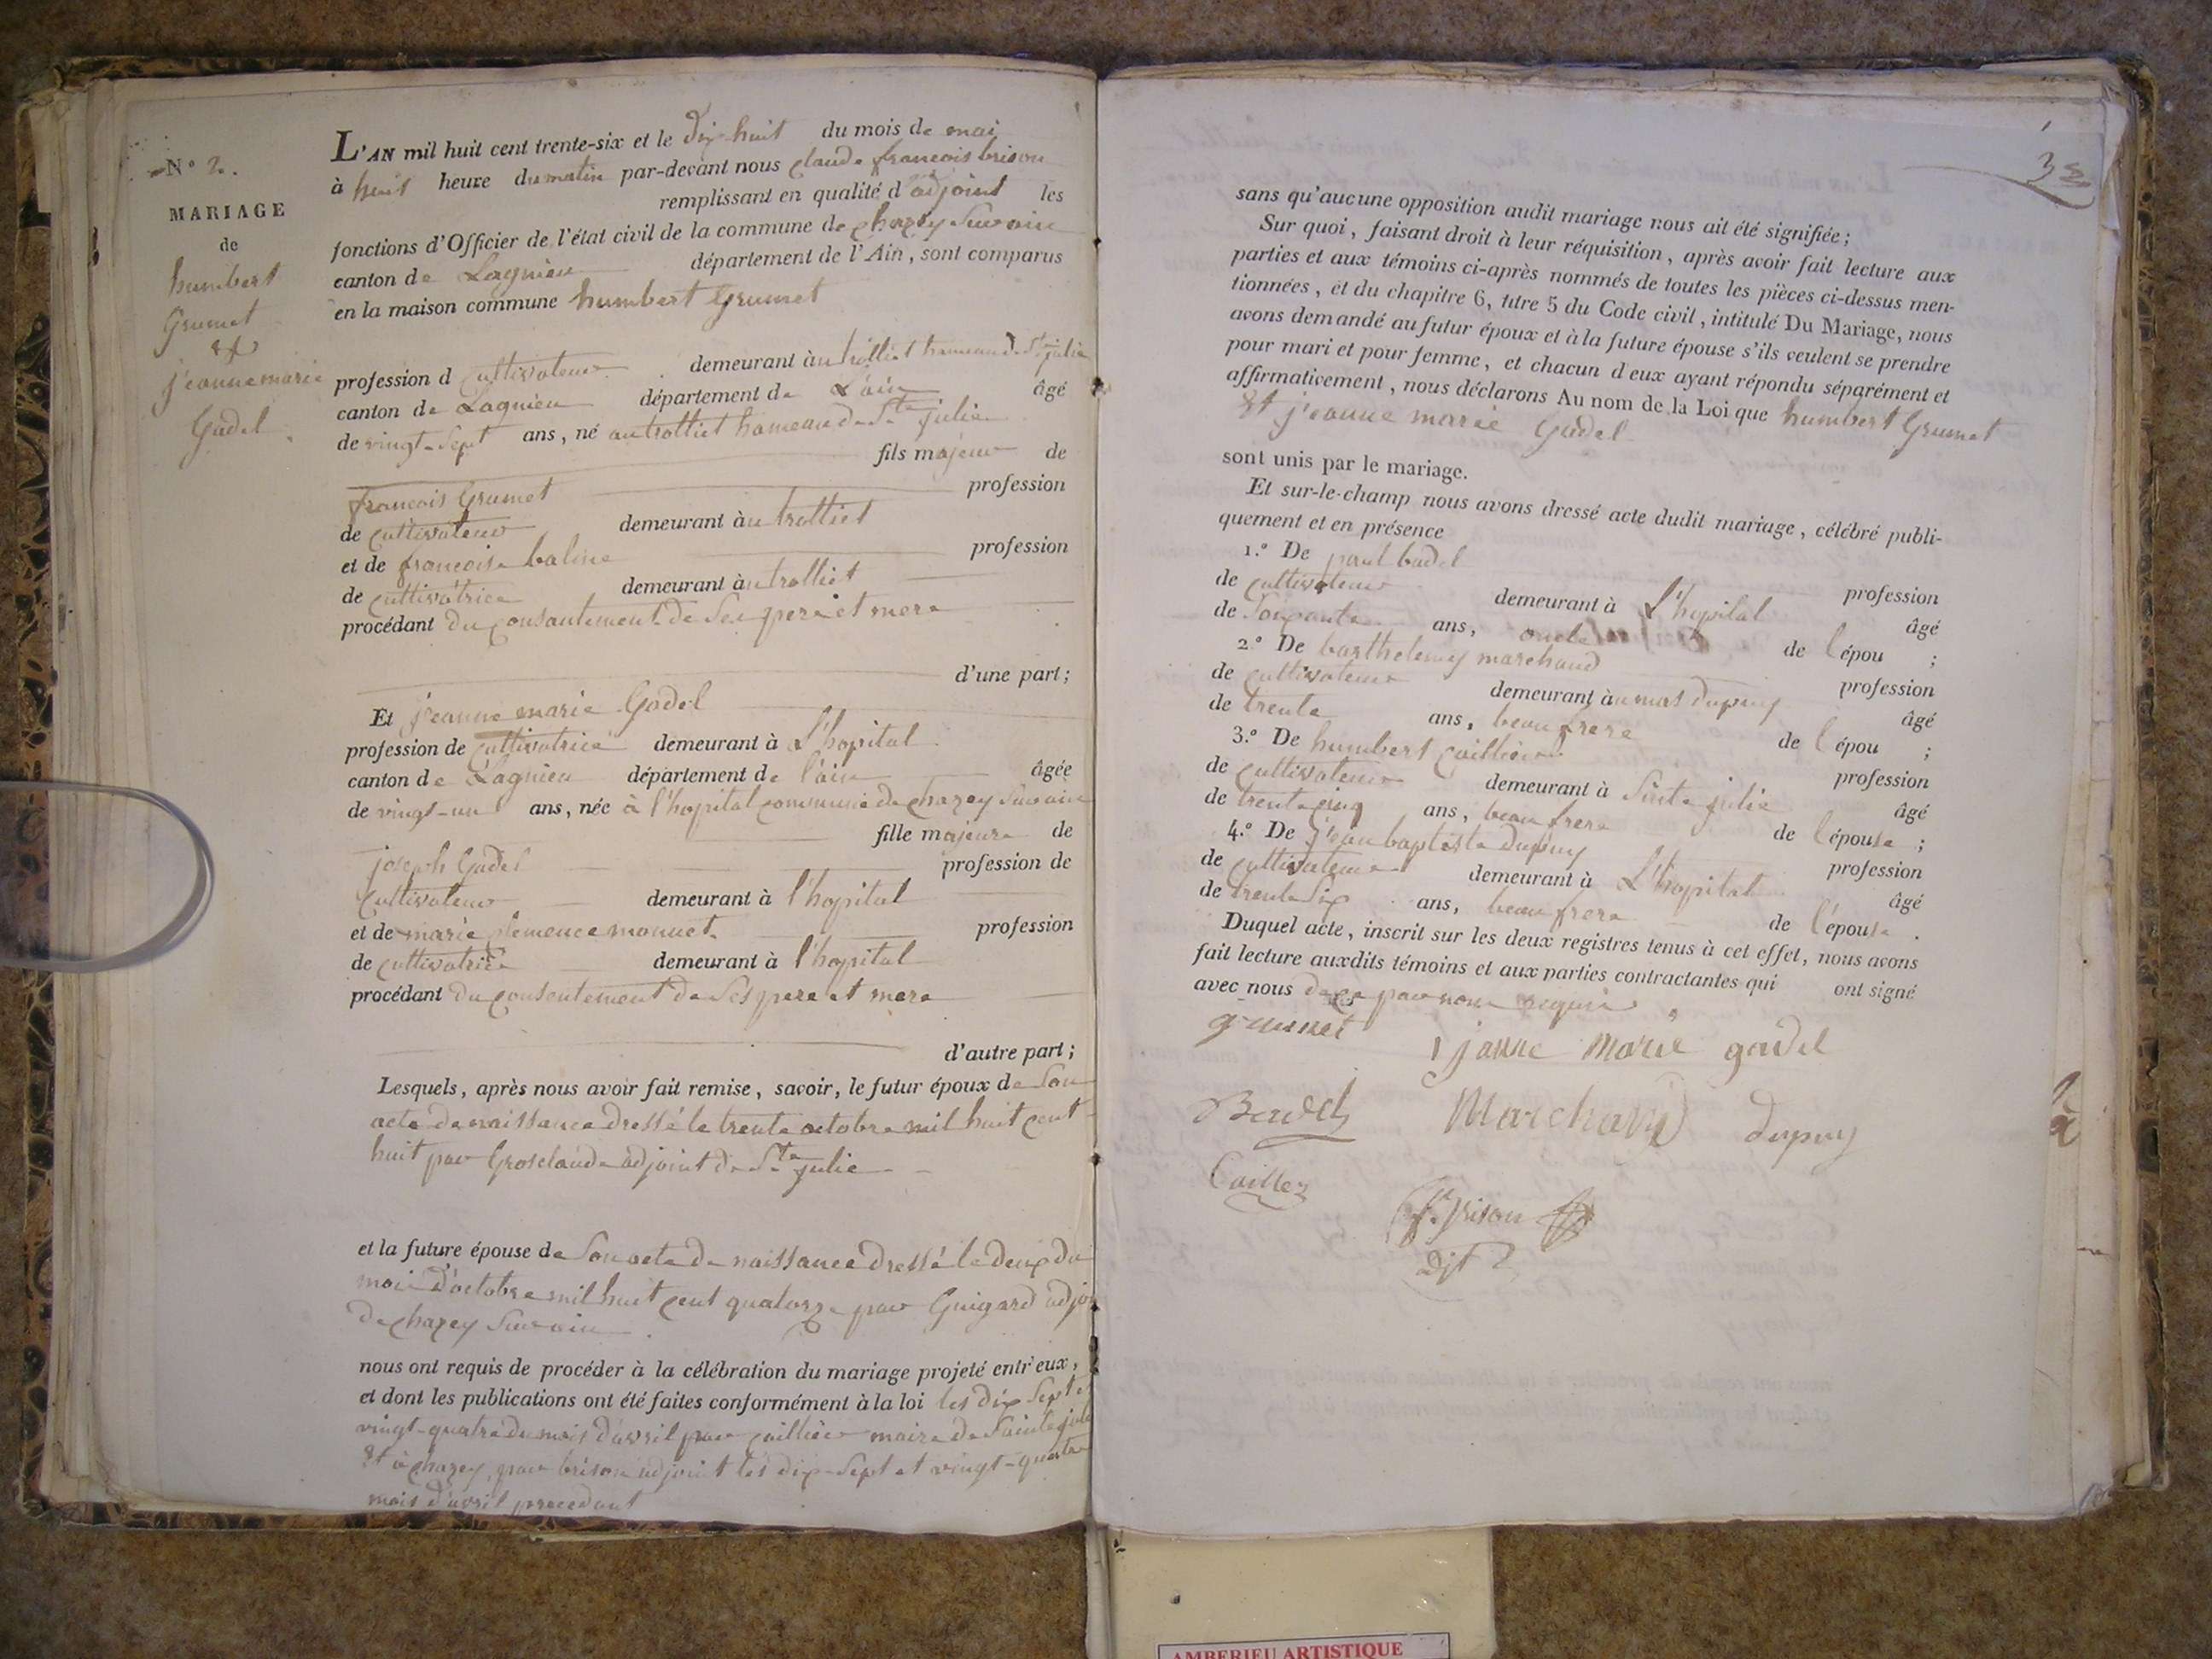 N° 2.
MARIAGE
de
humbert
Grumet
et
jeanne marie
Gadel
L'AN mil huit cent trente-six et le dix huit du mois de mai
à huit heure du matin par-devant nous claude francois brison
remplissant en qualité d'adjoint les
fonctions d'Officier de l'état civil de la commune de chazey sur ain
canton de Lagnieu département de l'Ain, sont comparus
en la maison commune humbert Grumet
profession d cultivateur demeurant au trolliet hameau de Ste julie
canton de Lagnieu département de L'ain âgé
de vingt-sept ans, né au trolliet hameau de Ste julie
fils majeur de
francois Grumet profession
de cultivateur demeurant àu trolliet
et de francoise baline profession
de cultivatrice demeurant àu trolliet
procédant du consantement de ses pere et mere
d'une part;
Et jeanne marie Gadel
profession de cultivatrice demeurant à L'hopital
canton de Lagnieu département de l'ain âgée
de vingt-un ans, née à l'hopital commune de chazey sur ain
fille majeure de
joseph Gadel profession de
cultivateur demeurant à l'hopital
et de marie clemence monnet profession
de cultivatrice demeurant à l'hopital
procédant du consentement de ses pere et mere
d'autre part;
Lesquels, après nous avoir fait remise, savoir, le futur époux de son
acte de naissance dressé le trente octobre mil huit cent
huit par Grosclaude adjoint de Ste julie
et la future épouse de son acte de naissance dressé le deux du
mois d'octobre mil huit cent quatorze par Guigard adjoi
de chazey sur ain
nous ont requis de procéder à la célébration du mariage projeté entr'eux,
et dont les publications ont été faites conformément à la loi les dix sept et
vingt-quatre du mois d'avril par caillier maire de Sainte julie
et à chazey par brison adjoint les dix-sept et vingt-quatre
mois d'avril precedant
3
sans qu'aucune opposition audit mariage nous ait été signifiée;
Sur quoi, faisant droit à leur réquisition, après avoir fait lecture aux
parties et aux témoins ci-après nommés de toutes les pièces ci-dessus men-
tionnées, et du chapitre 6, titre 5 du Code civil, intitulé Du Mariage, nous
avons demandé au futur époux et à la future épouse s'ils veulent se prendre
pour mari et pour femme, et chacun d'eux ayant répondu séparément et
affirmativement, nous déclarons Au nom de la Loi que humbert Grumet
et jeanne marie Gadel
sont unis par le mariage.
Et sur-le-champ nous avons dressé acte dudit mariage, célébré publi-
quement et en présence
1.° De paul badel profession
de cultivateur demeurant à L'hopital âgé
de soixante ans, oncle de l'épou ;
2.° De barthelemy marchand profession
de cultivateur demeurant àu mas dupuy âgé
de trente ans, beau frere de l'épou ;
3.° De humbert caillier profession
de cultivateur demeurant à Sinte julie âgé
de trente cinq ans, beau frere de l'épouse ;
4.° De jean baptiste dupuy profession
de cultivateur demeurant à L'hopital âgé
de trente six ans, beau frere de l'épouse .
Duquel acte, inscrit sur les deux registres tenus à cet effet, nous avons
fait lecture auxdits témoins et aux parties contractantes qui ont signé
avec nous de ce par nous requis
grumet janne marie gadel
Badel Marchand dupuy
Caillez
Cf. Brison
Adjt
AMBERIEU ARTISTIQUE